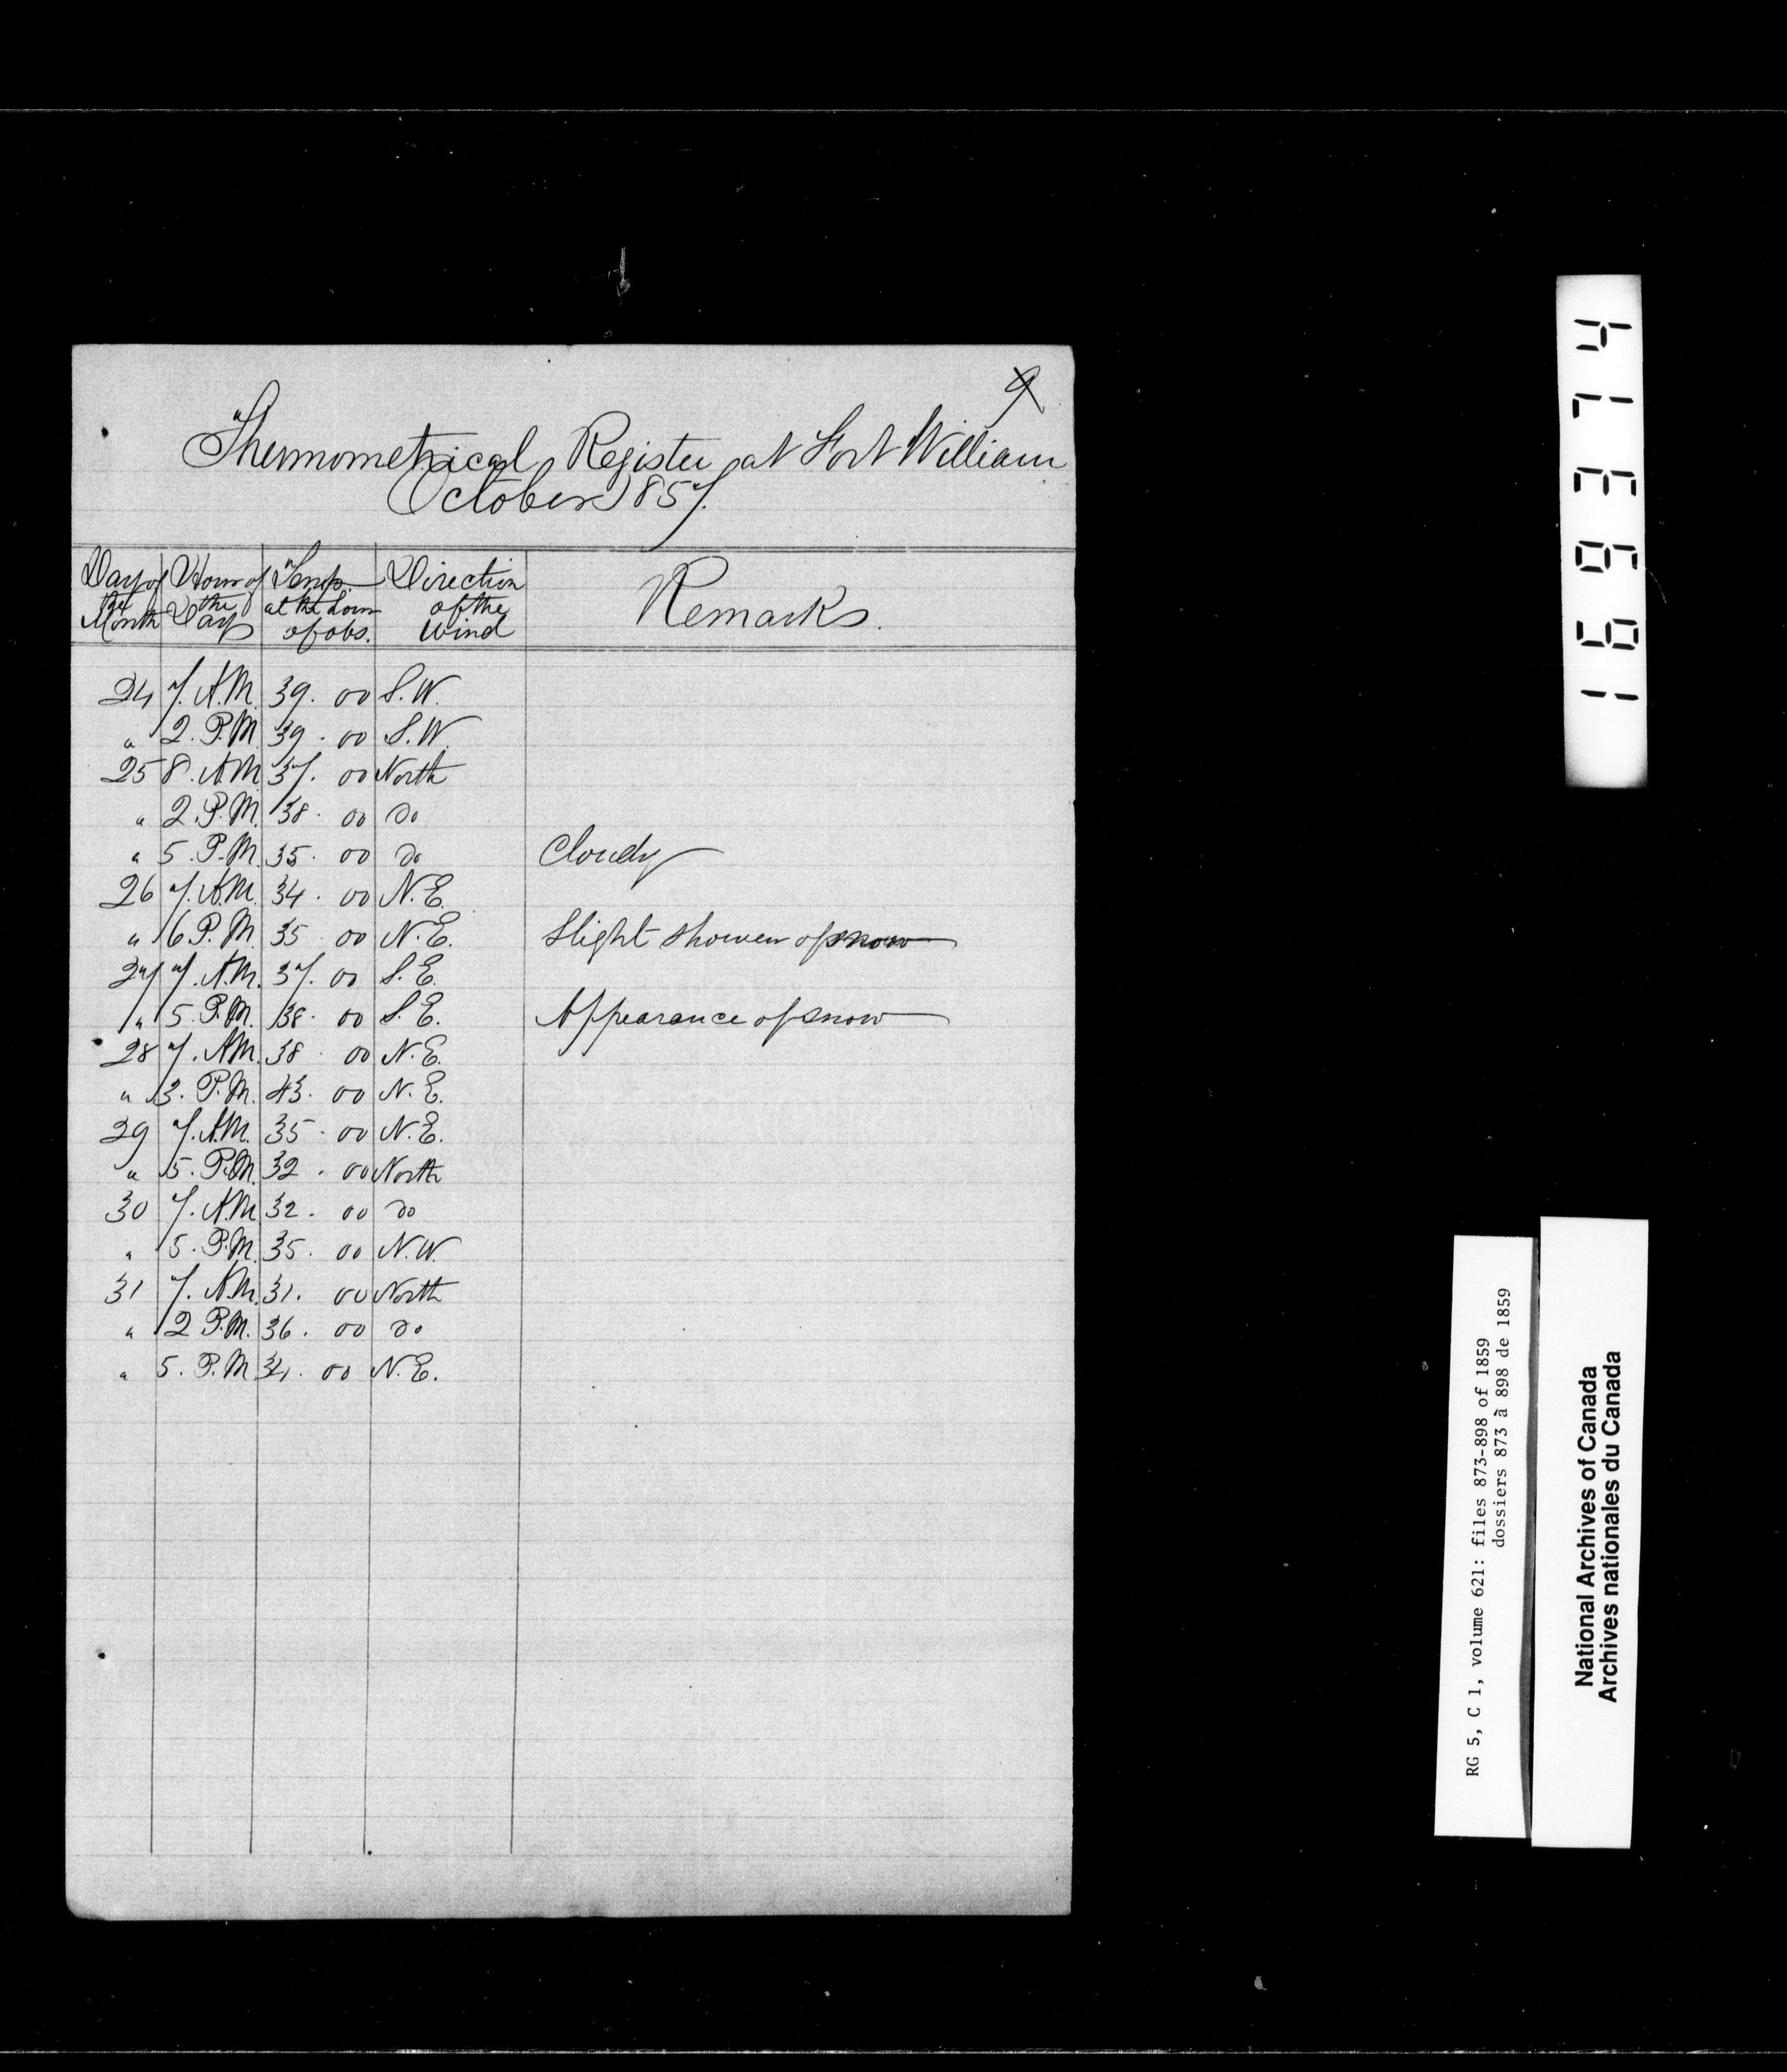 9
Thermometrical Register at Fort William
October 1857.
Day of the Month Hour of the Day Temp. at the hour of obs. Direction of the Wind Remarks.
24 7. A.M. 39. 00 S.W.
" 2. P.M. 39. 00 S.W.
25 8. A.M. 37. 00 North
" 2. P.M. 38. 00 Do
" 5. P.M. 35. 00 Do Cloudy
26 7. A.M. 34. 00 N.E.
" 6 P.M. 35. 00 N.E. Slight shower of snow
27 7. A.M. 37. 00 S.E.
" 5. P.M. 38. 00 S.E. Appearance of snow
28 7. A.M. 38. 00 N.E.
" 3. P.M. 43. 00 N.E.
29 7. A.M. 35. 00 N.E.
" 5. P.M. 32. 00 North
30 7. A.M. 32. 00 Do
" 5. P.M. 35. 00 N.W.
31 7. A.M. 31. 00 North
" 2 P.M. 36. 00 Do
" 5. P.M. 34. 00 N.E.
169374
RG 5, C 1, volume 621: files 873-898 of 1859
dossiers 873 à 898 de 1859
National Archives of Canada
Archives nationales du Canada